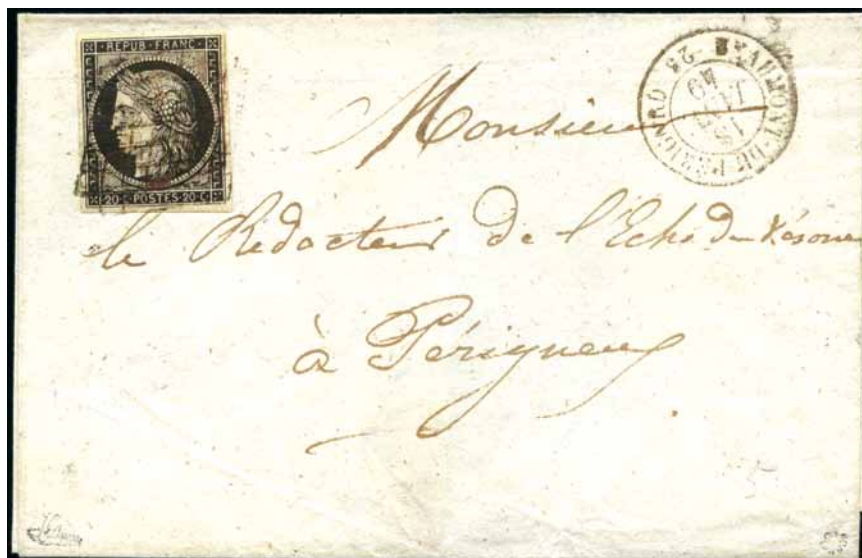 REPUB·FRANC·
20·C·POSTES·20·C
BEAUMONT-DU-PERIGORD (23)
49
Monsieur
le Redacteur de l'Echo de Vésone
à Périgueux